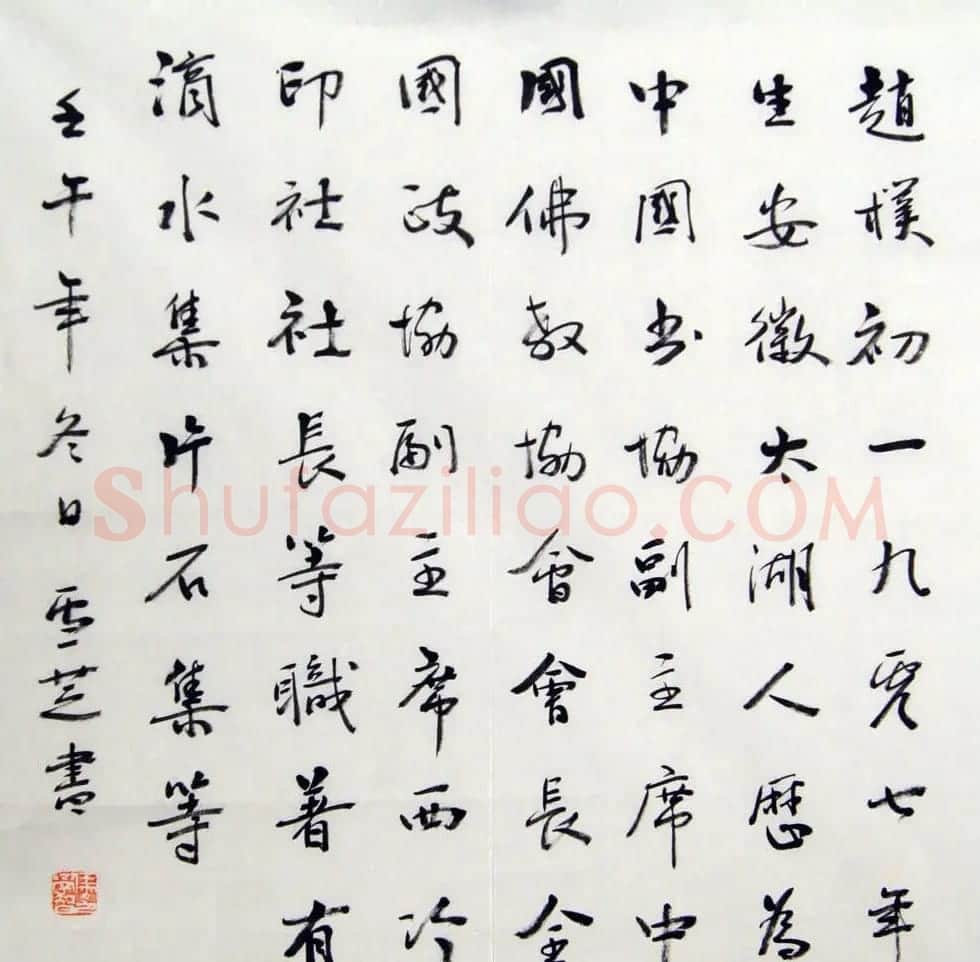 趙樸初一九零七年
生安徽太湖人歷為
中國书協副主席中
國佛教協會會長全
國政協副主席西泠
印社社長等職著有
滴水集片石集等
壬午年冬日雪芝書
Shufaziliao.COM